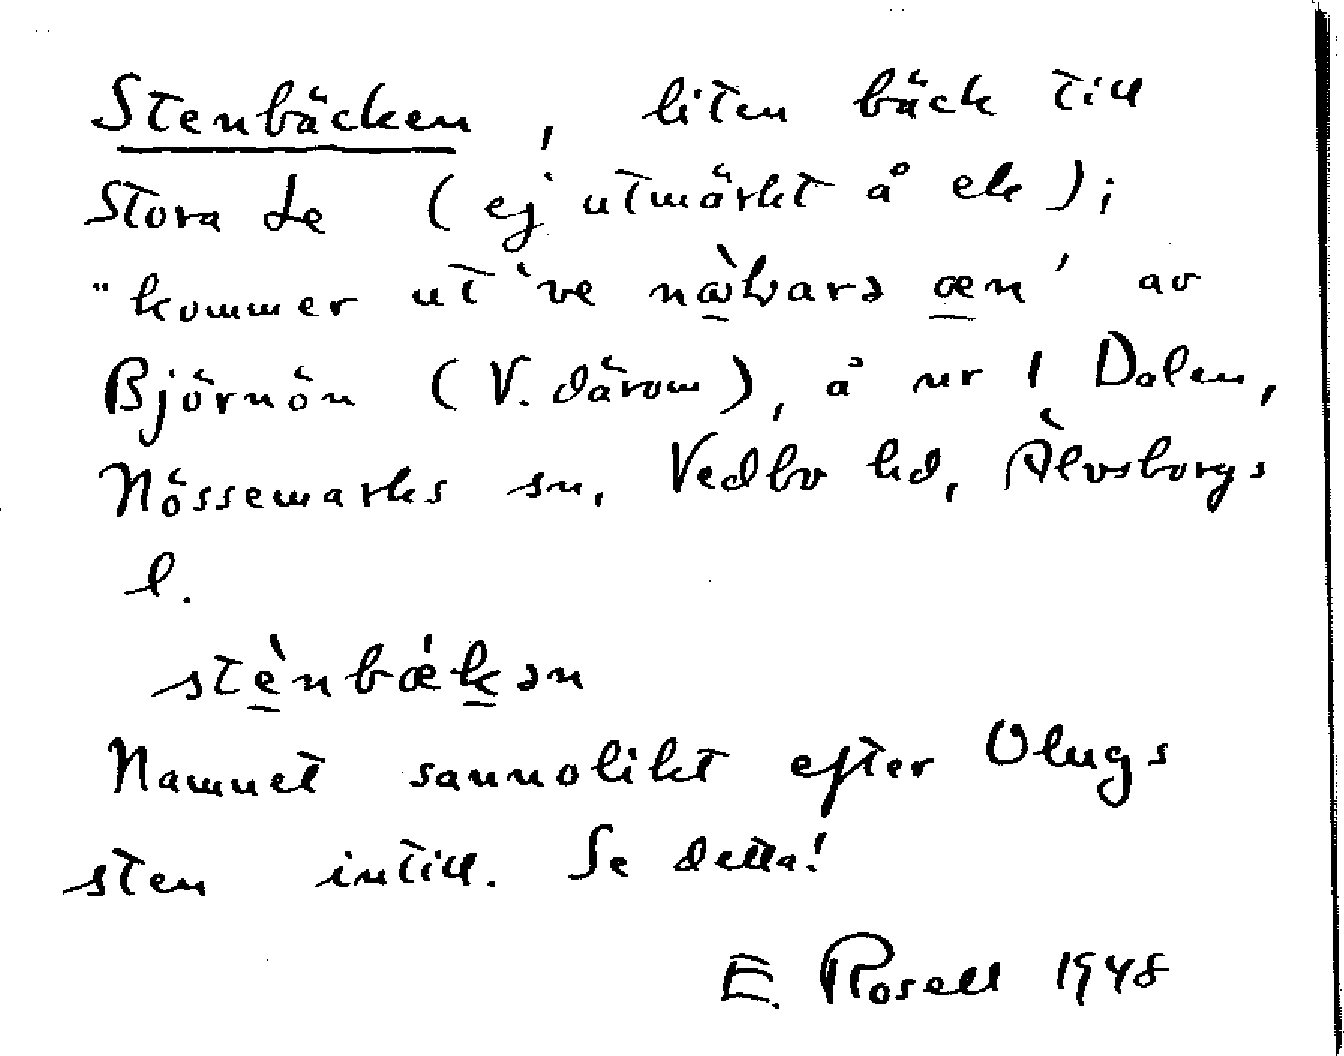 Stenbäcken, liten bäck till
Stora Le (ej utmärkt å ek);
"kommer ut 've næ̀lvarə æn' av
Björnön (V. därom), å nr 1 Dalen,
Nössemarks sn, Vedbo hd, Älvsborgs
l.
stènbǽkən
Namnet sannolikt efter Olugs
sten intill. Se detta!
E. Rosell 1948